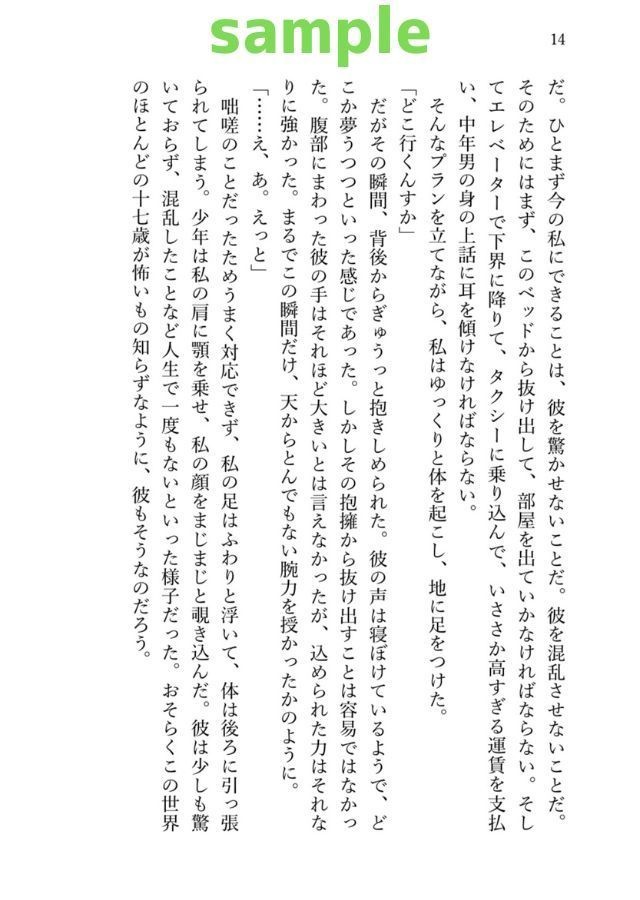 sample
14
だ。ひとまず今の私にできることは、彼を驚かせないことだ。彼を混乱させないことだ。
そのためにはまず、このベッドから抜け出して、部屋を出ていかなければならない。そし
てエレベーターで下界に降りて、タクシーに乗り込んで、いささか高すぎる運賃を支払
い、中年男の身の上話に耳を傾けなければならない。
そんなプランを立てながら、私はゆっくりと体を起こし、地に足をつけた。
「どこ行くんすか」
だがその瞬間、背後からぎゅうっと抱きしめられた。彼の声は寝ぼけているようで、ど
こか夢うつつといった感じであった。しかしその抱擁から抜け出すことは容易ではなかっ
た。腹部にまわった彼の手はそれほど大きいとは言えなかったが、込められた力はそれな
りに強かった。まるでこの瞬間だけ、天からとんでもない腕力を授かったかのように。
「……え、あ。えっと」
咄嗟のことだったためうまく対応できず、私の足はふわりと浮いて、体は後ろに引っ張
られてしまう。少年は私の肩に顎を乗せ、私の顔をまじまじと覗き込んだ。彼は少しも驚
いておらず、混乱したことなど人生で一度もないといった様子だった。おそらくこの世界
のほとんどの十七歳が怖いもの知らずなように、彼もそうなのだろう。